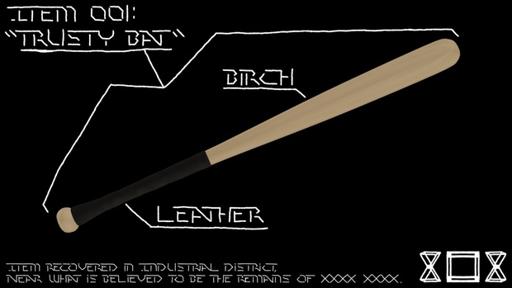 ITEM 001:
"TRUSTY BAT"
BIRCH
LEATHER
ITEM RECOVERED IN INDUSTRIAL DISTRICT,
NEAR WHAT IS BELIEVED TO BE THE REMAINS OF XXXX XXXX.